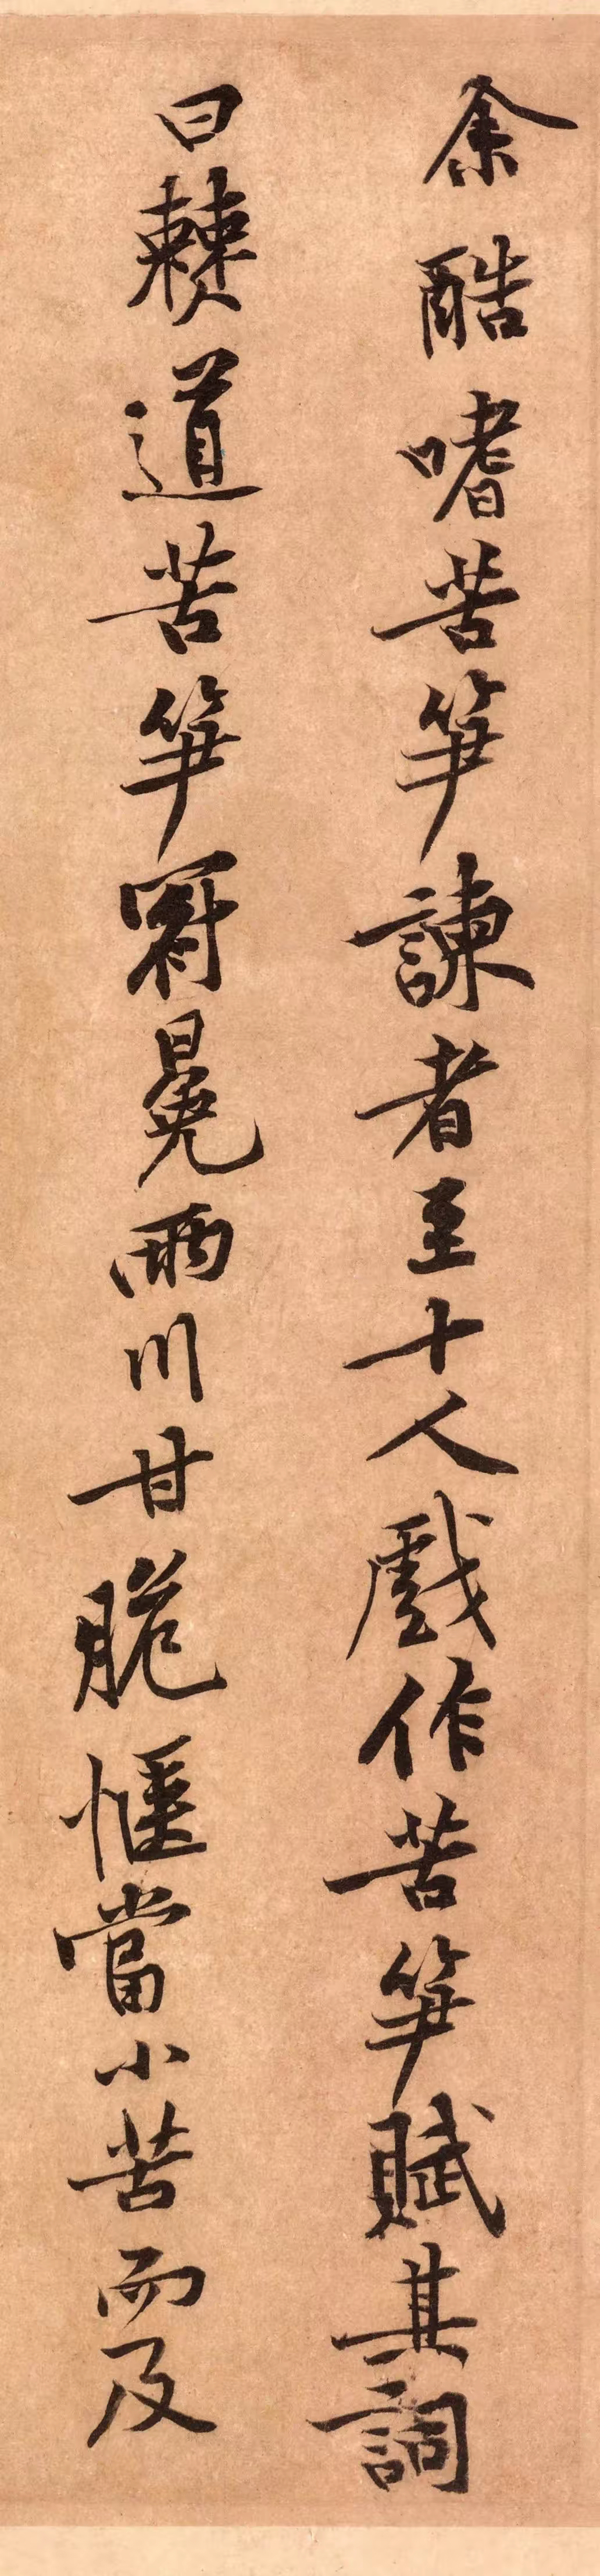 余酷嗜苦笋諫者至十人戲作苦笋賦其詞
曰僰道苦笋冠冕兩川甘脆愜當小苦而及